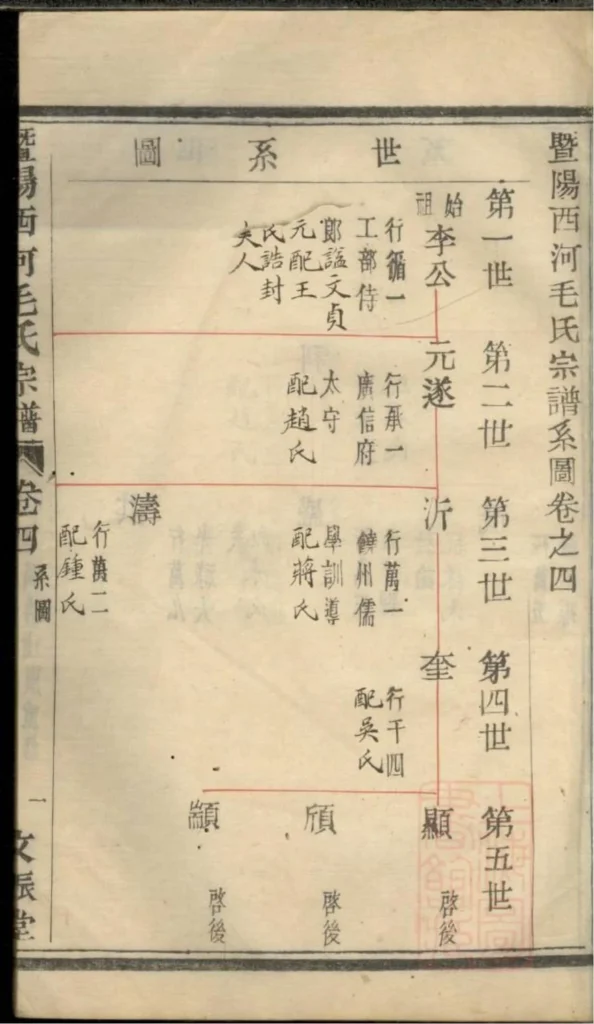 暨陽西河毛氏宗譜系圖卷之四
世系圖
第一世
始祖
李公
行循一
工部侍
郎諡文貞
元配王
氏誥封
夫人
第二世
元遂
行承一
廣信府
太守
配趙氏
第三世
沂
行萬一
饒州儒
學訓導
配蔣氏
濤
行萬二
配鍾氏
第四世
奎
行千四
配吳氏
第五世
顯
啓後
頎
啓後
顓
啓後
暨陽西河毛氏宗譜
卷四
系圖
一
文振堂